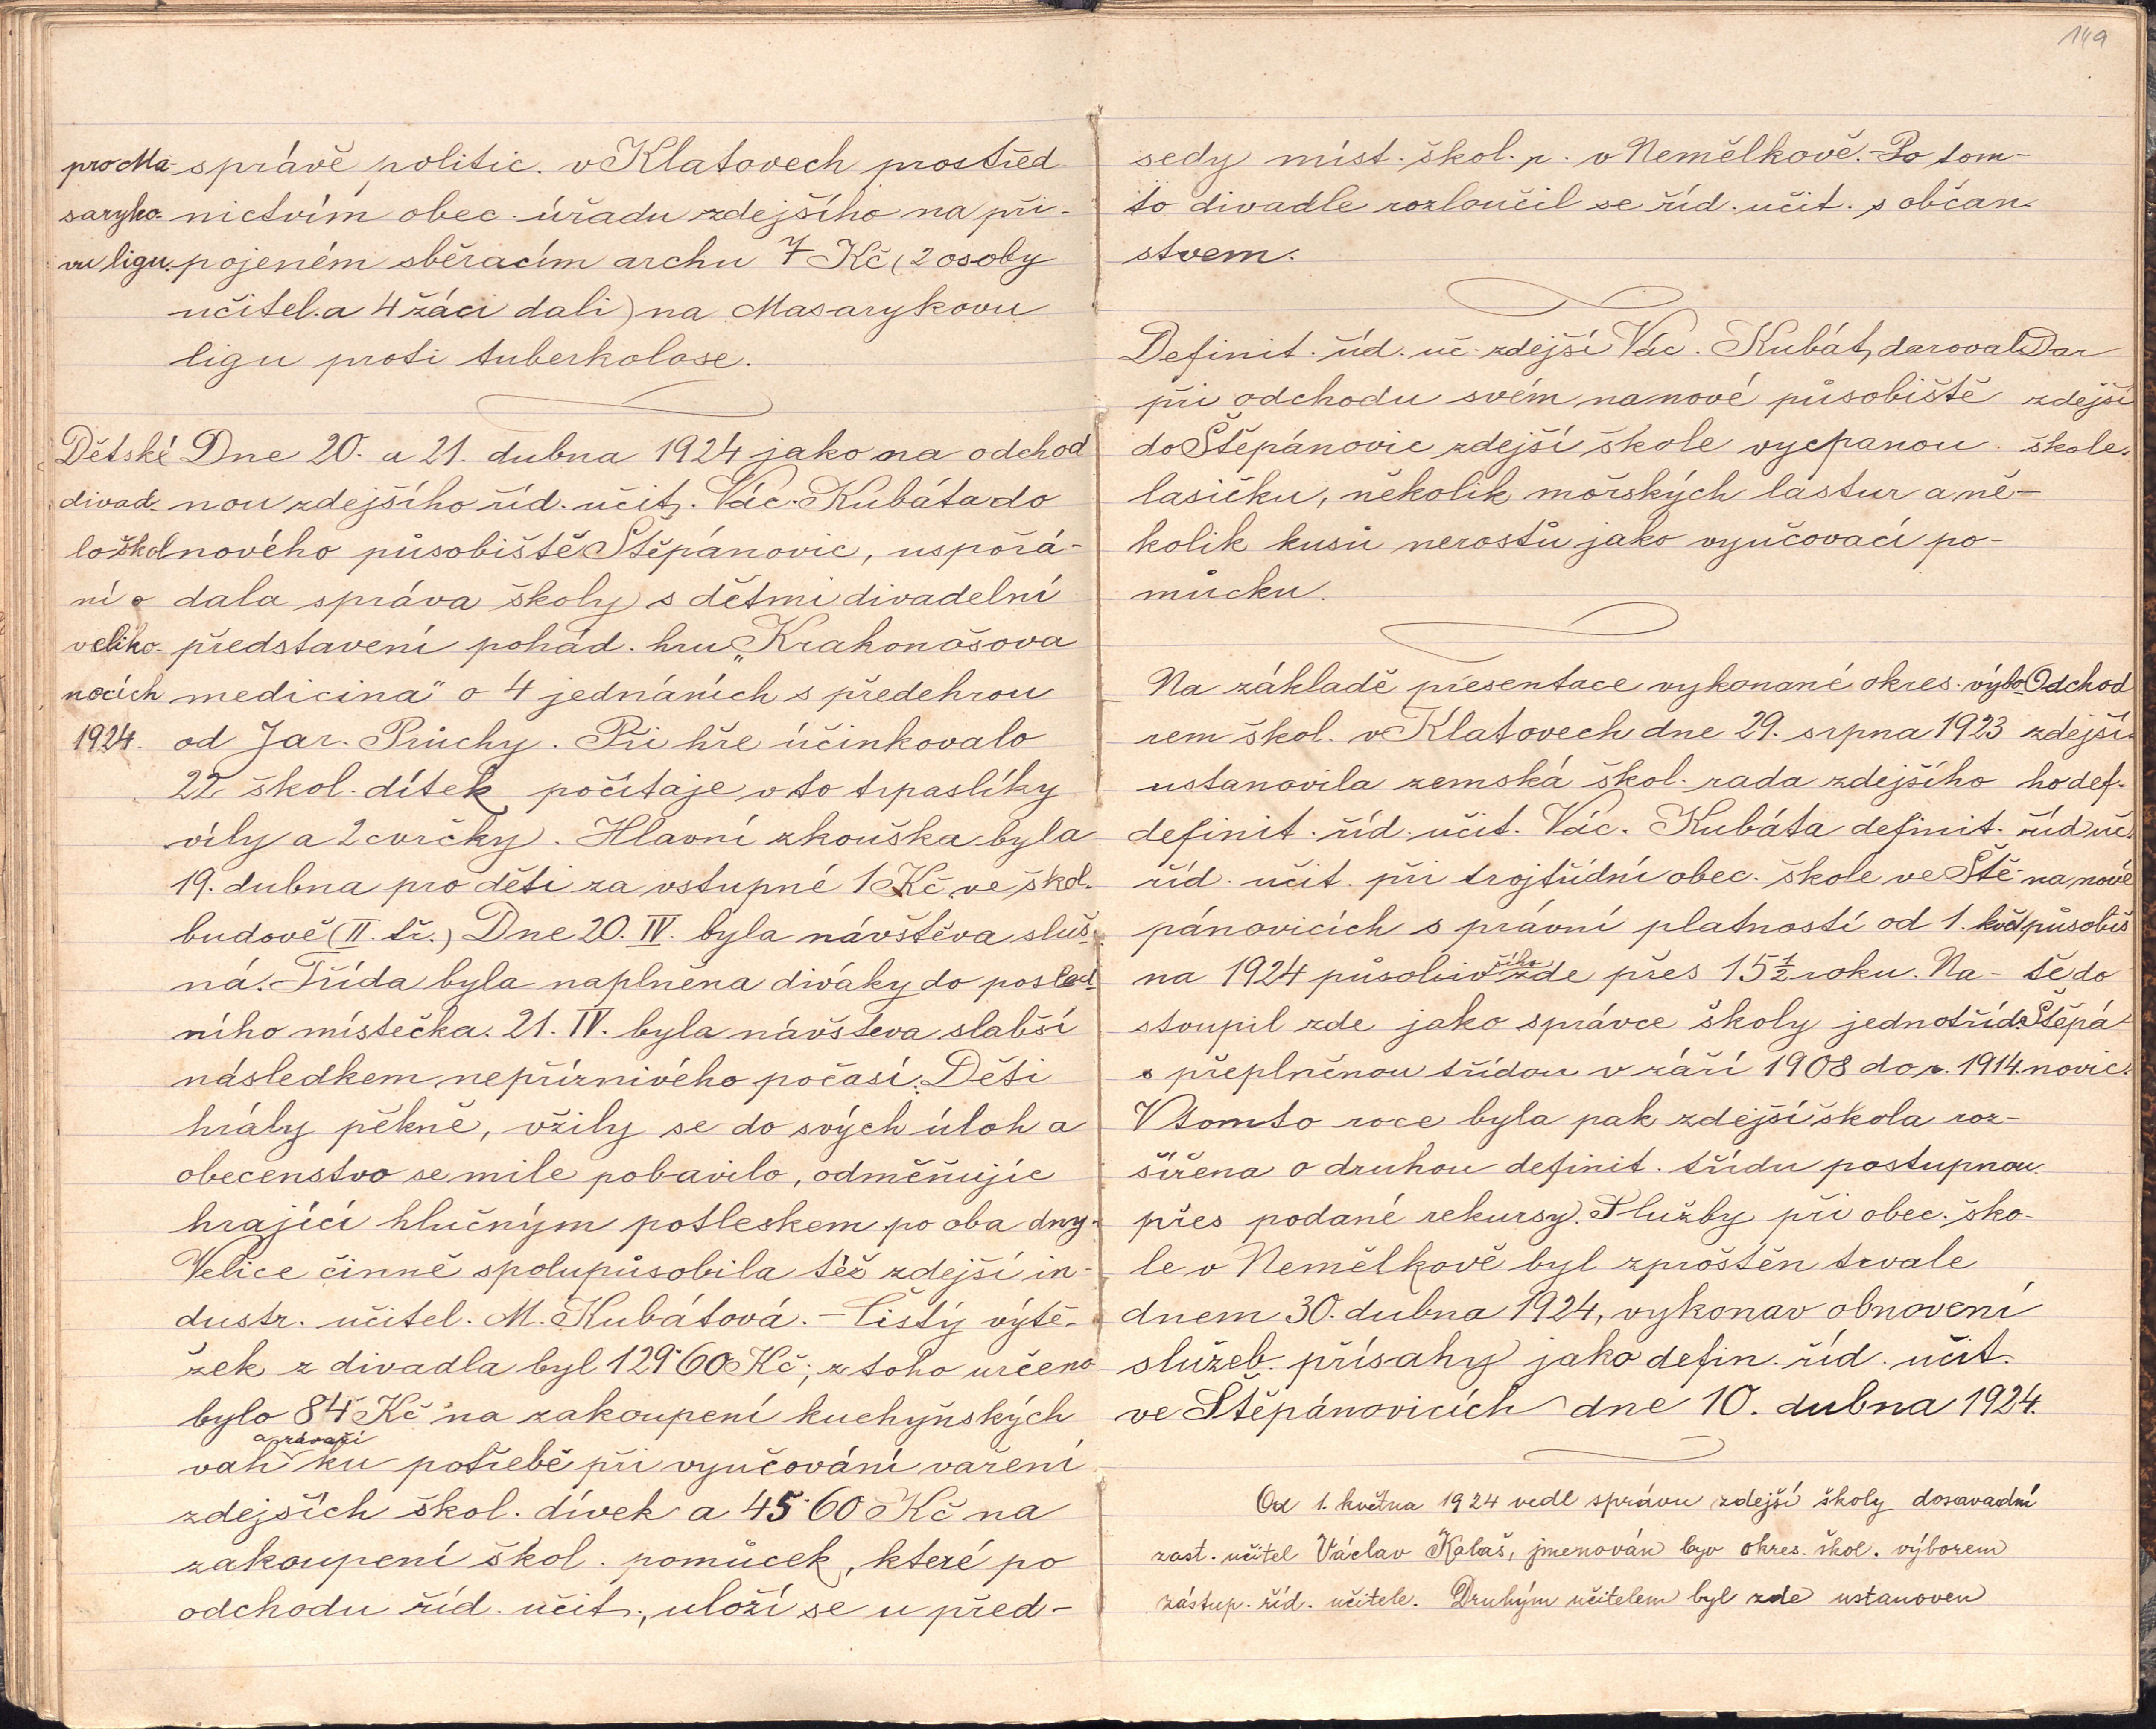 149
pro Ma-
saryko-
vu ligu.
správě politic. v Klatovech prostřed
nictvím obec. úřadu zdejšího na při-
pojeném sběracím archu 7 Kč (2 osoby
učitel. a 4 žáci dali) na Masarykovu
ligu proti tuberkolose.
Dětské
divad.
lo škol
ní o
veliko-
nocích
1924.
Dne 20. a 21. dubna 1924 jako na odchod
nou zdejšího říd. učit. Vác. Kubáta do
nového působiště Štěpánovic, uspořá-
dala správa školy s dětmi divadelní
představení pohád. hru „Krakonošova
medicina" o 4 jednáních s předehrou
od Jar. Průchy. Při hře účinkovalo
22 škol. dítek počítaje v to trpaslíky
víly a 2 cvrčky. Hlavní zkouška byla
19. dubna pro děti za vstupné 1 Kč ve škol.
budově (II. tř.) Dne 20. IV. byla návštěva sluš-
ná. Třída byla naplněna diváky do posled-
ního místečka. 21. IV. byla návštěva slabší
následkem nepříznivého počasí. Děti
hrály pěkně, vžily se do svých úloh a
obecenstvo se mile pobavilo, odměňujíc
hrající hlučným potleskem po oba dny.
Velice činně spolupůsobila též zdejší in-
dustr. učitel. M. Kubátová. – Čistý výtě-
žek z divadla byl 129·60 Kč; z toho určeno
bylo 84 Kč na zakoupení kuchyňských
a závaží
vah ku potřebě při vyučování vaření
zdejších škol. dívek a 45·60 Kč na
zakoupení škol. pomůcek, které po
odchodu říd. učit., uloží se u před-
sedy míst. škol. r. v Nemělkově. – Po tom-
to divadle rozloučil se říd. učit. s občan-
stvem.
Definit. říd. uč. zdejší Vác. Kubát, daroval
při odchodu svém na nové působiště
do Štěpánovic zdejší škole vycpanou
lasičku, několik mořských lastur a ně-
kolik kusů nerostů jako vyučovací po-
můcku.
Dar
zdejší
škole.
Na základě presentace vykonané okres. výbo-
rem škol. v Klatovech dne 29. srpna 1923
ustanovila zemská škol. rada zdejšího
definit. říd. učit. Vác. Kubáta definit.
říd. učit. při trojtřídní obec. škole ve Ště-
pánovicích s právní platností od 1. květ
na 1924 působiv zde přes 15 ½ roku. Na-
stoupil zde jako správce školy jednotříd.
s přeplněnou třídou v září 1908 do r. 1914.
V tomto roce byla pak zdejší škola roz-
šířena o druhou definit. třídu postupnou
přes podané rekursy. Služby při obec. ško-
le v Nemělkově byl zproštěn trvale
dnem 30. dubna 1924, vykonav obnovení
služeb. přísahy jako defin. říd. učit.
ve Štěpánovicích dne 10. dubna 1924.
Odchod
zdejší-
ho def.
říd uč.
na nové
působiš
tě do
Štěpá
novic.
Od 1. května 1924 vedl správu zdejší školy dosavadní
zast. učitel Václav Kalaš, jmenován byv okres. škol. výborem
zástup. říd. učitele. Druhým učitelem byl zde ustanoven